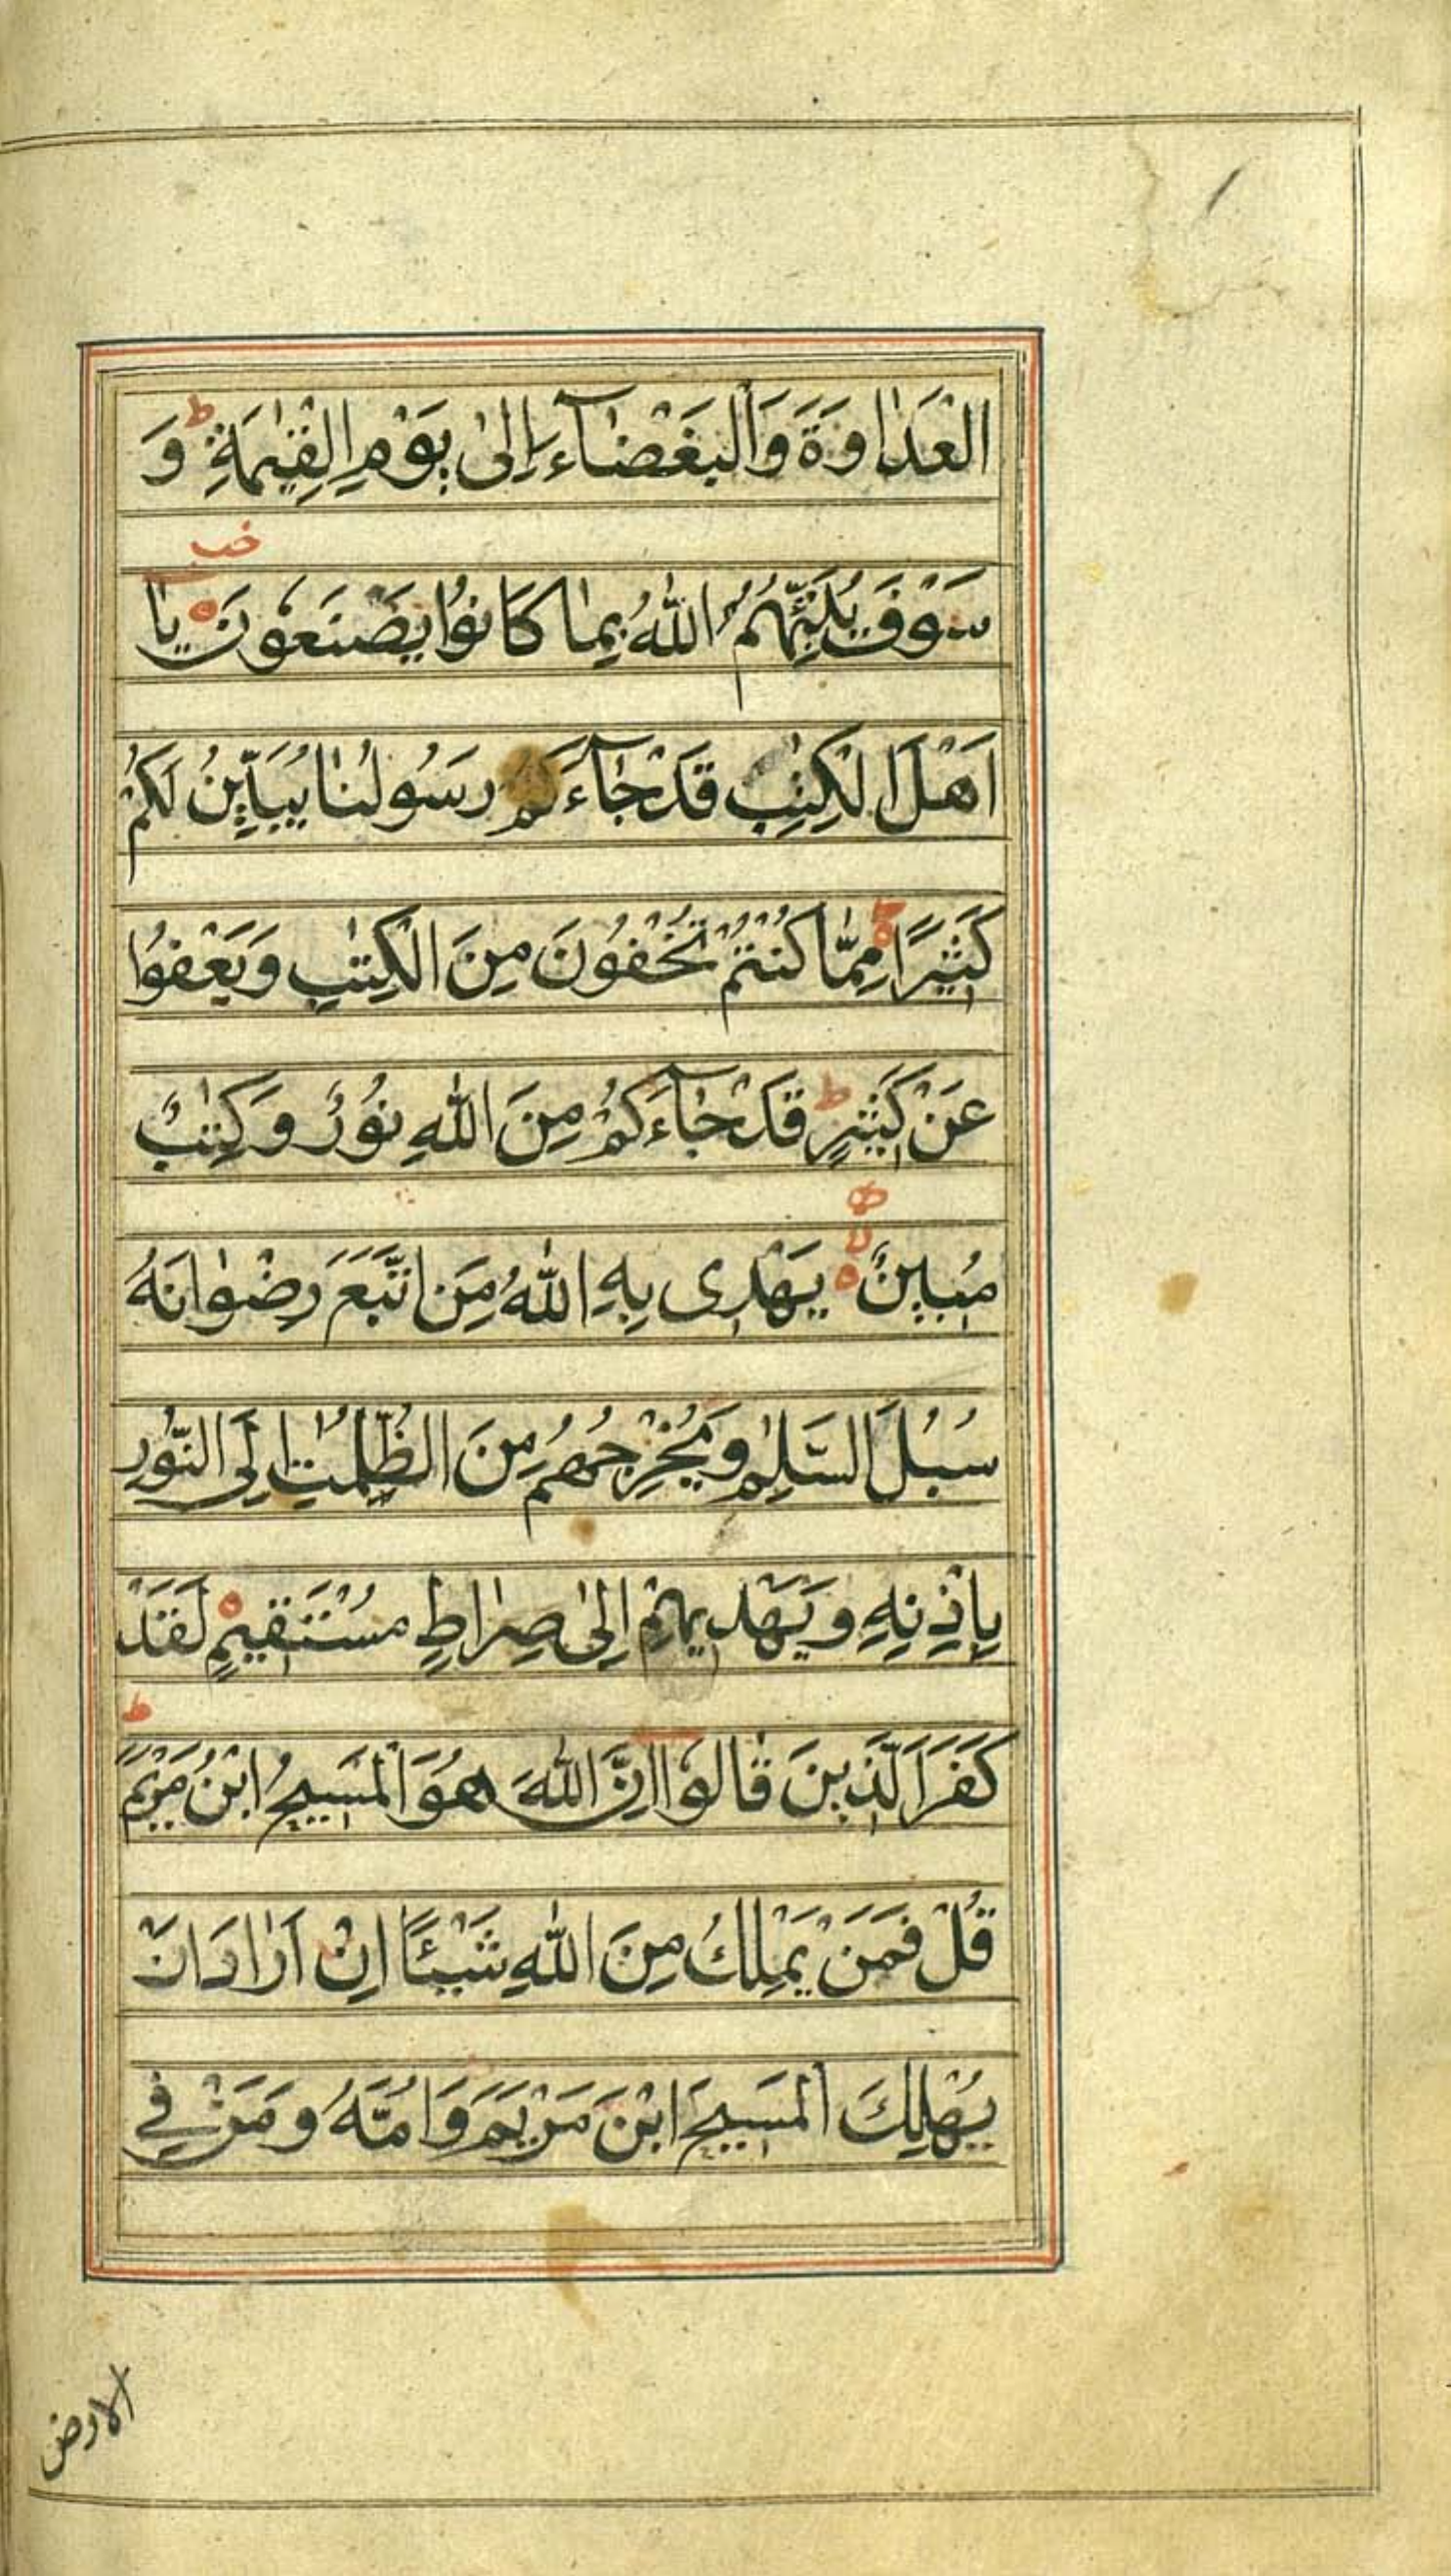 الْعَدٰاوَةَ وَالْبَغْضٰآءَ اِلىٰ يَوْمِ الْقِيٰمَةِ ط وَ
خب
سَوْفَ يُنَبِّئُهُمُ اللّٰهُ بِمٰا كَانُوْا يَصْنَعُوْنَ ه يٰا
اَهْلَ الْكِتٰبِ قَدْ جٰآءَكُمْ رَسُولُنٰا يُبَيِّنُ لَكُمْ
كَثِيْرًا مِمّٰا كُنْتُمْ تُخْفُوْنَ مِنَ الْكِتٰبِ وَيَعْفُوْا
عَنْ كَثِيْرٍ ط قَدْ جٰآءَكُمْ مِنَ اللّٰهِ نُوْرٌ وَكِتٰبٌ
مُبِينٌ ه لا يَهْدِى بِهِ اللّٰهُ مَنِ اتَّبَعَ رِضْوٰانَهُ
سُبُلَ السَّلٰمِ وَيُخْرِجُهُمْ مِنَ الظُّلُمٰتِ اِلَى النُّوْرِ
بِاِذْنِهِ وَيَهْدِيهِمْ اِلىٰ صِرٰاطٍ مُسْتَقِيمٍ ه لَقَدْ
ط
كَفَرَ الَّذِينَ قٰالُوْا اِنَّ اللّٰهَ هُوَ الْمَسِيحُ ابْنُ مَرْيَمَ
قُلْ فَمَنْ يَمْلِكُ مِنَ اللّٰهِ شَيْئًا اِنْ اَرٰادَ اَنْ
يُهْلِكَ الْمَسِيحَ ابْنَ مَرْيَمَ وَاُمَّهُ وَمَنْ فِي
الارض